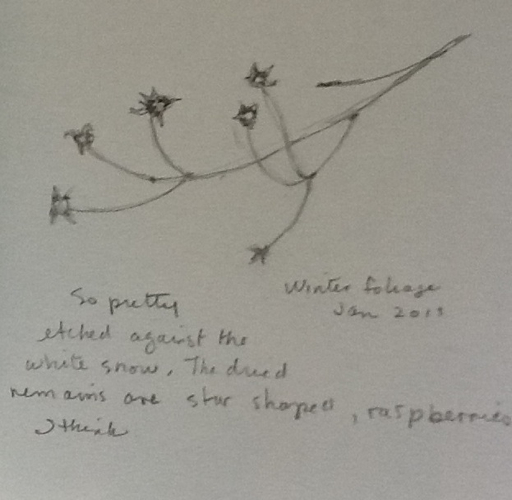 Winter foliage
Jan 2013
So pretty
etched against the
white snow. The dried
remains are star shaped, raspberries
I think